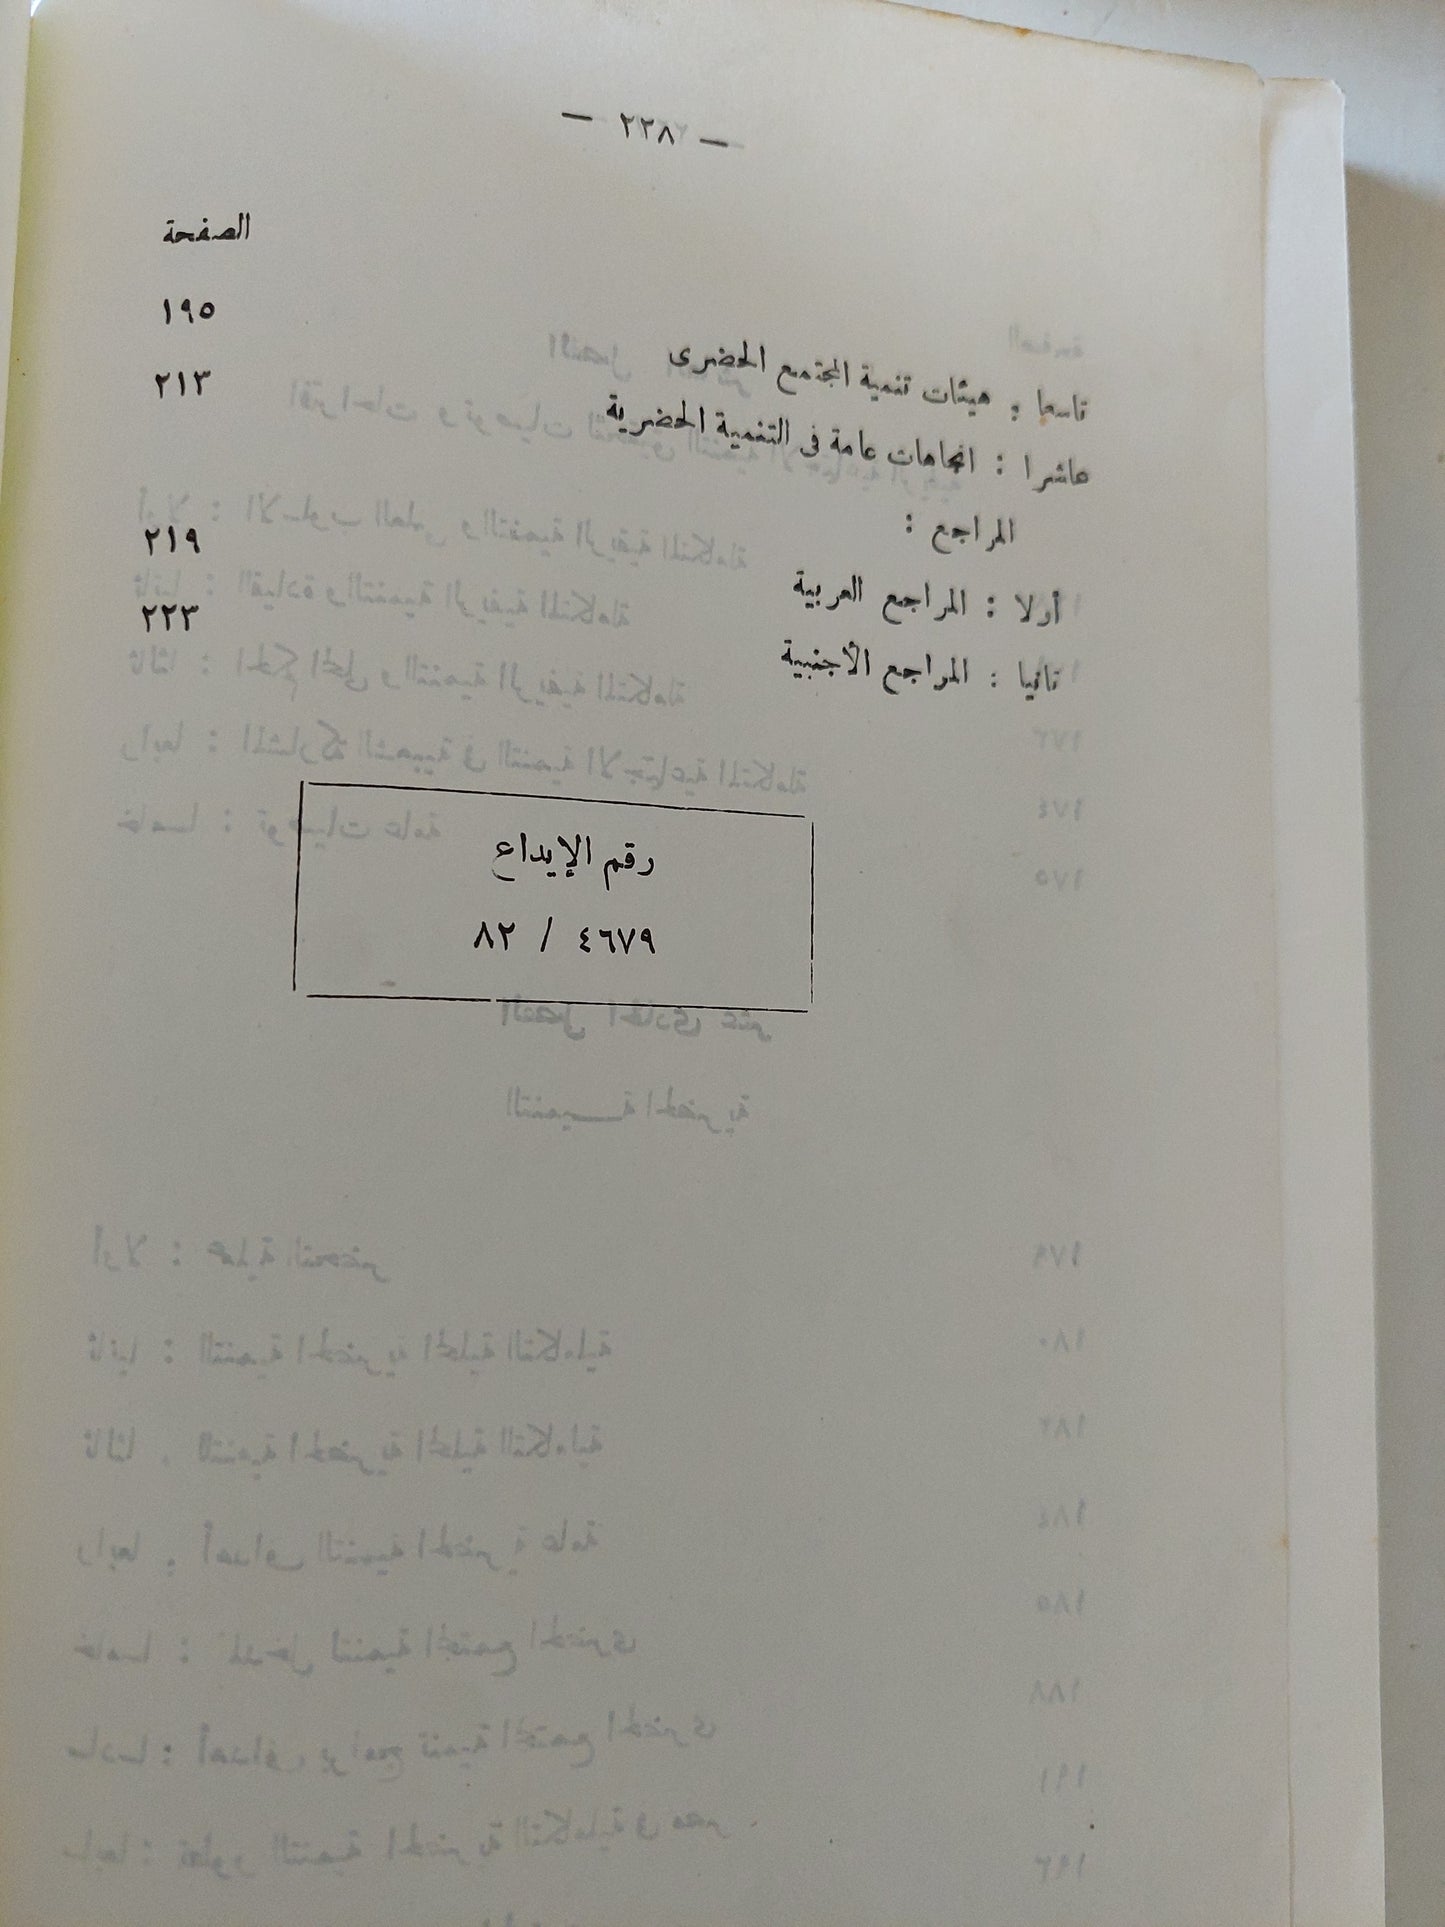 — ٢٢٨ —
الصفحة
تاسعا : هيئات تنمية المجتمع الحضرى ١٩٥
عاشرا : اتجاهات عامة فى التنمية الحضرية ٢١٣
المراجع :
أولا : المراجع العربية ٢١٩
ثانيا : المراجع الأجنبية ٢٢٣
رقم الإيداع
٤٦٧٩ / ٨٢